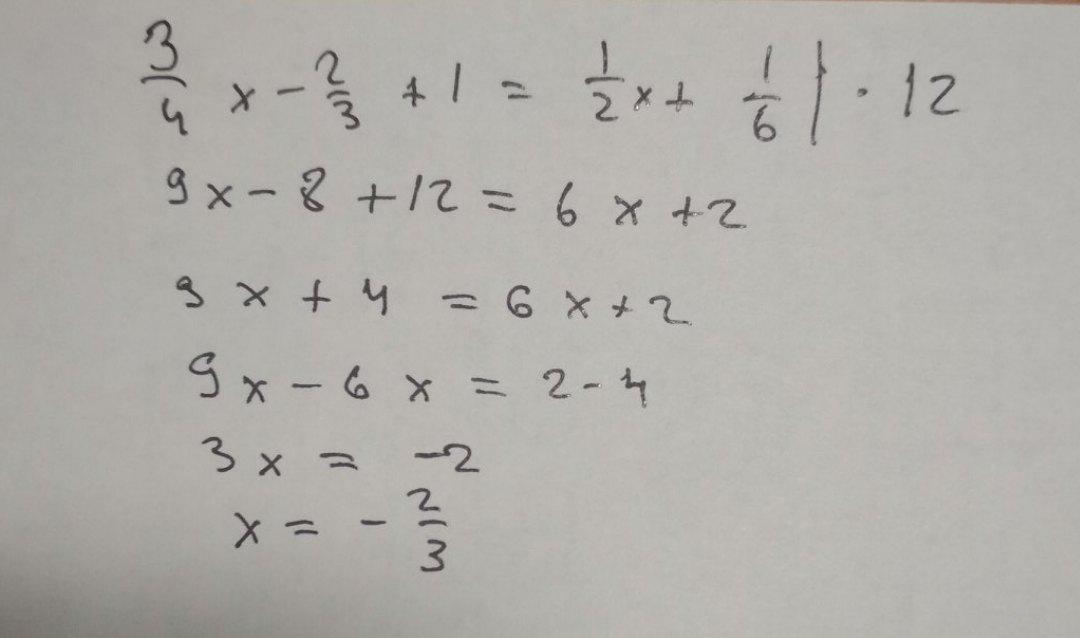 3/4 x - 2/3 + 1 = 1/2 x + 1/6 | · 12
9x - 8 + 12 = 6x + 2
9x + 4 = 6x + 2
9x - 6x = 2 - 4
3x = -2
x = - 2/3